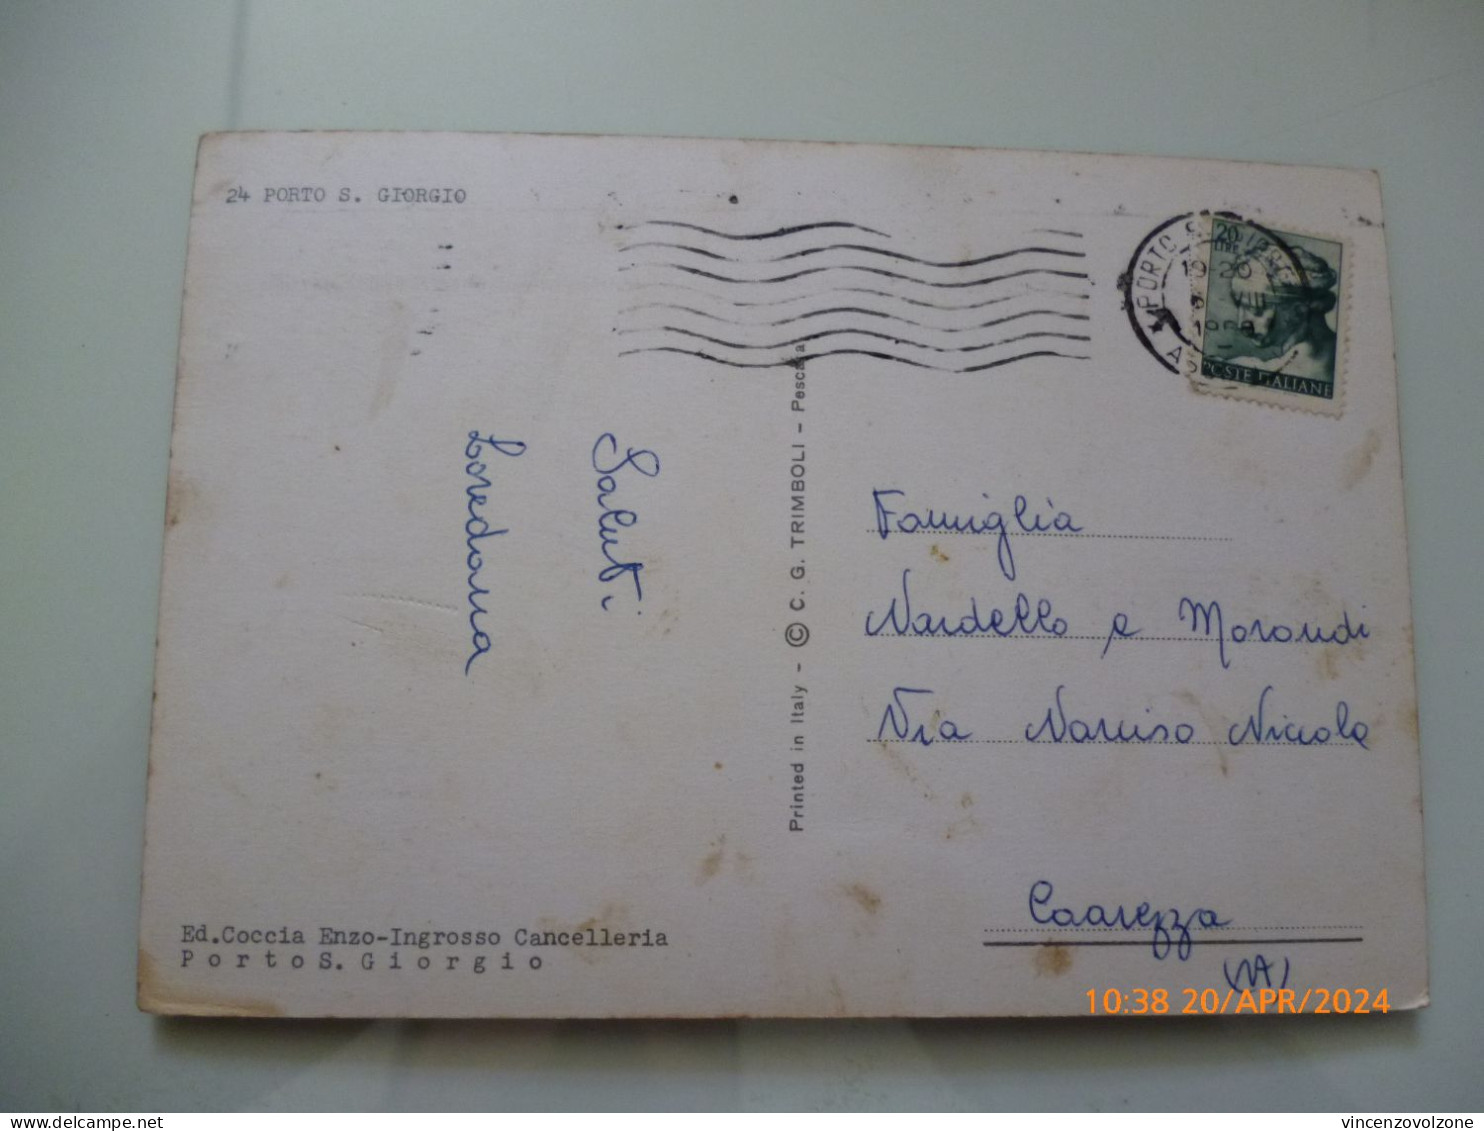 24 PORTO S. GIORGIO
PORTO S. GIORGIO
19-20
VIII
20
LIRE
POSTE ITALIANE
Saluti
Loredana
Printed in Italy - © C. G. TRIMBOLI - Pescara
Famiglia
Nardello e Morandi
Via Narciso Nicola
(VA)
Ed.Coccia Enzo-Ingrosso Cancelleria
Porto S. Giorgio
10:38 20/APR/2024
vincenzovolzone